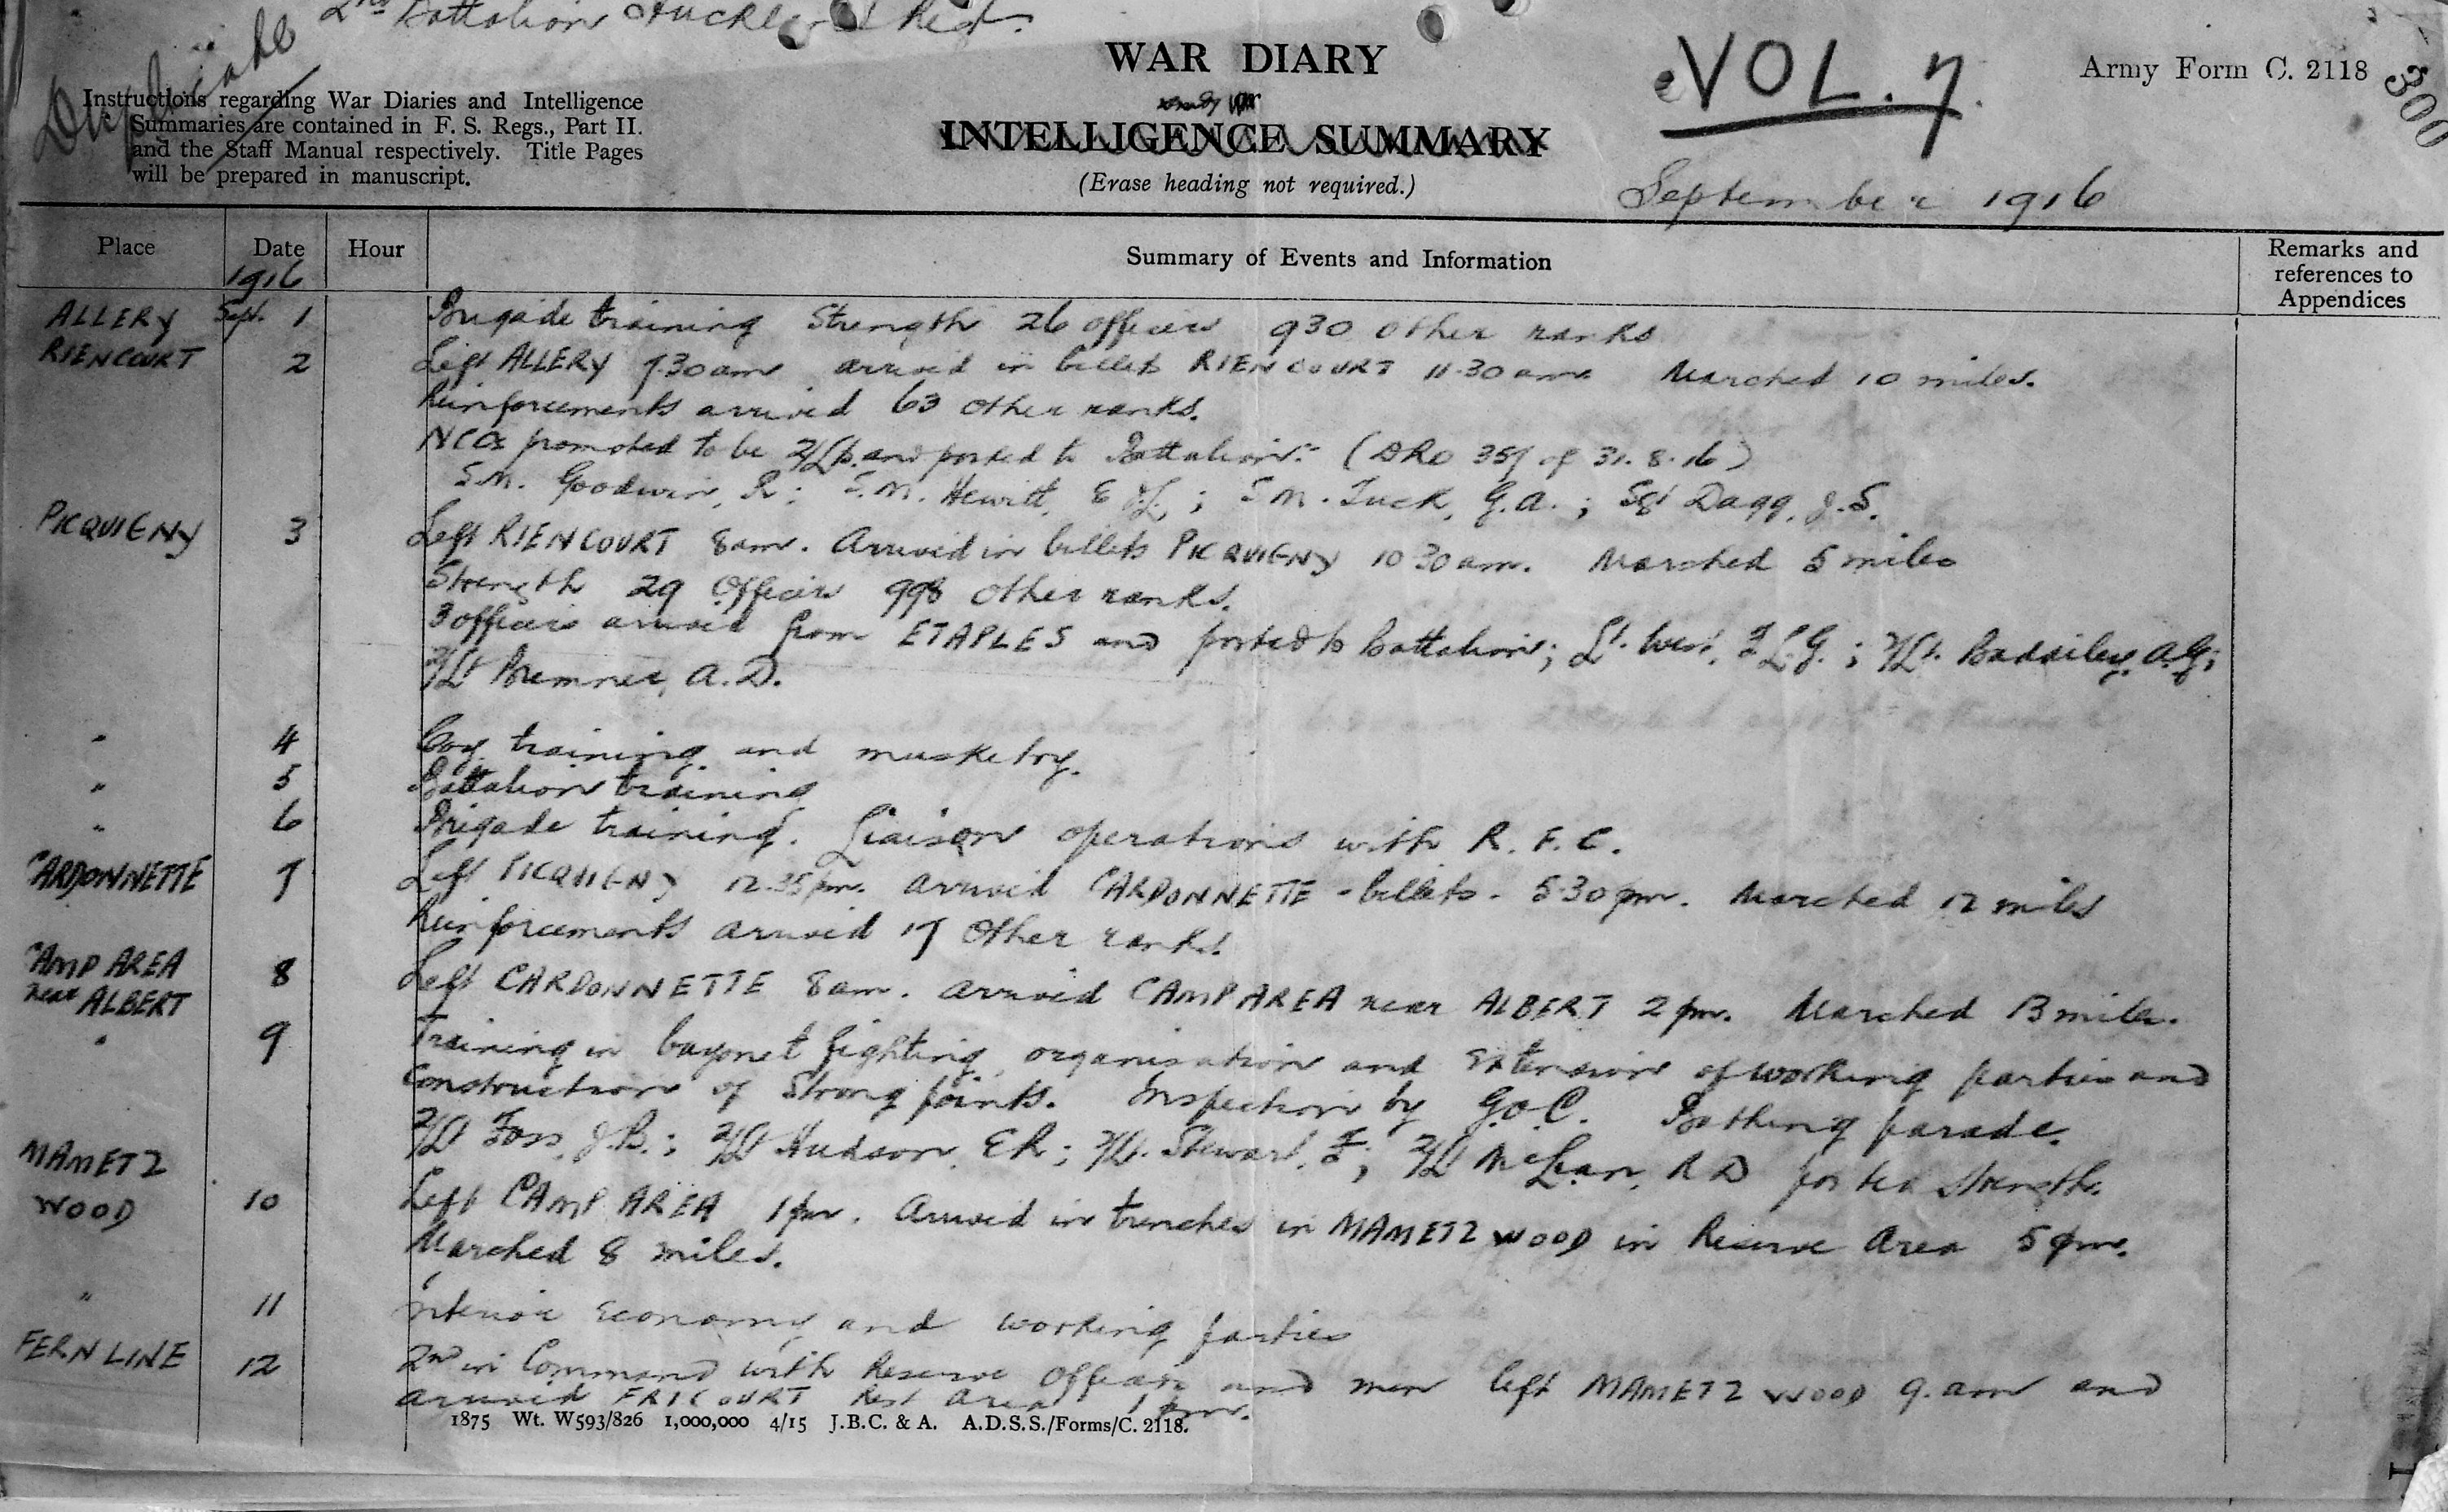 Duplicate
2nd Battalion Auckland Regt.
WAR DIARY
VOL. 7.
Army Form C. 2118
300
Instructions regarding War Diaries and Intelligence
Summaries are contained in F. S. Regs., Part II.
and the Staff Manual respectively. Title Pages
will be prepared in manuscript.
INTELLIGENCE SUMMARY
(Erase heading not required.)
September 1916
Place Date Hour Summary of Events and Information Remarks and references to Appendices
1916
ALLERY Sept. 1 Brigade training Strength 26 officers 930 other ranks
RIENCOURT 2 Left ALLERY 7.30am arrived in billets RIENCOURT 11.30am. Marched 10 miles.
Reinforcements arrived 63 other ranks.
NCOs promoted to be 2/Lts. and posted to Battalion:- (DRO 357 of 31.8.16)
S.M. Goodwin, R; S.M. Hewitt, E.J.L.; S.M. Tuck, G.A.; Sgt Dagg, J.S.
PICQUIGNY 3 Left RIENCOURT 8am. Arrived in billets PICQUIGNY 10.30am. Marched 5 miles
Strength 29 Officers 998 other ranks.
3 officers arrived from ETAPLES and posted to Battalion; Lt. West, F.L.G.; 2/Lt. Baddiley, A.G;
2/Lt Bremner, A.D.
" 4 Coy training and musketry.
" 5 Battalion training
" 6 Brigade training. Liaison operations with R.F.C.
CARDONNETTE 7 Left PICQUIGNY 12.35pm. arrived CARDONNETTE - billets - 5.30pm. Marched 12 miles
Reinforcements arrived 17 Other ranks.
CAMP AREA
near ALBERT 8 Left CARDONNETTE 8am. arrived CAMP AREA near ALBERT 2pm. Marched 13 miles.
" 9 Training in bayonet fighting, organisation and extension of working parties and
construction of Strong points. Inspection by G.O.C. Bathing parade.
2/Lt Foss, J.B.; 2/Lt Hudson, E.R; 2/Lt. Stewart, F; 2/Lt McLean, R D posted strength.
MAMETZ
WOOD 10 Left CAMP AREA 1pm. Arrived in trenches in MAMETZ WOOD in Reserve Area 5pm.
Marched 8 miles.
" 11 Interior Economy and working parties
FERN LINE 12 2nd in Command with Reserve Officers and men left MAMETZ WOOD 9.am and
arrived FRICOURT Rest Area 1pm.
1875 Wt. W593/826 1,000,000 4/15 J.B.C. & A. A.D.S.S./Forms/C. 2118.